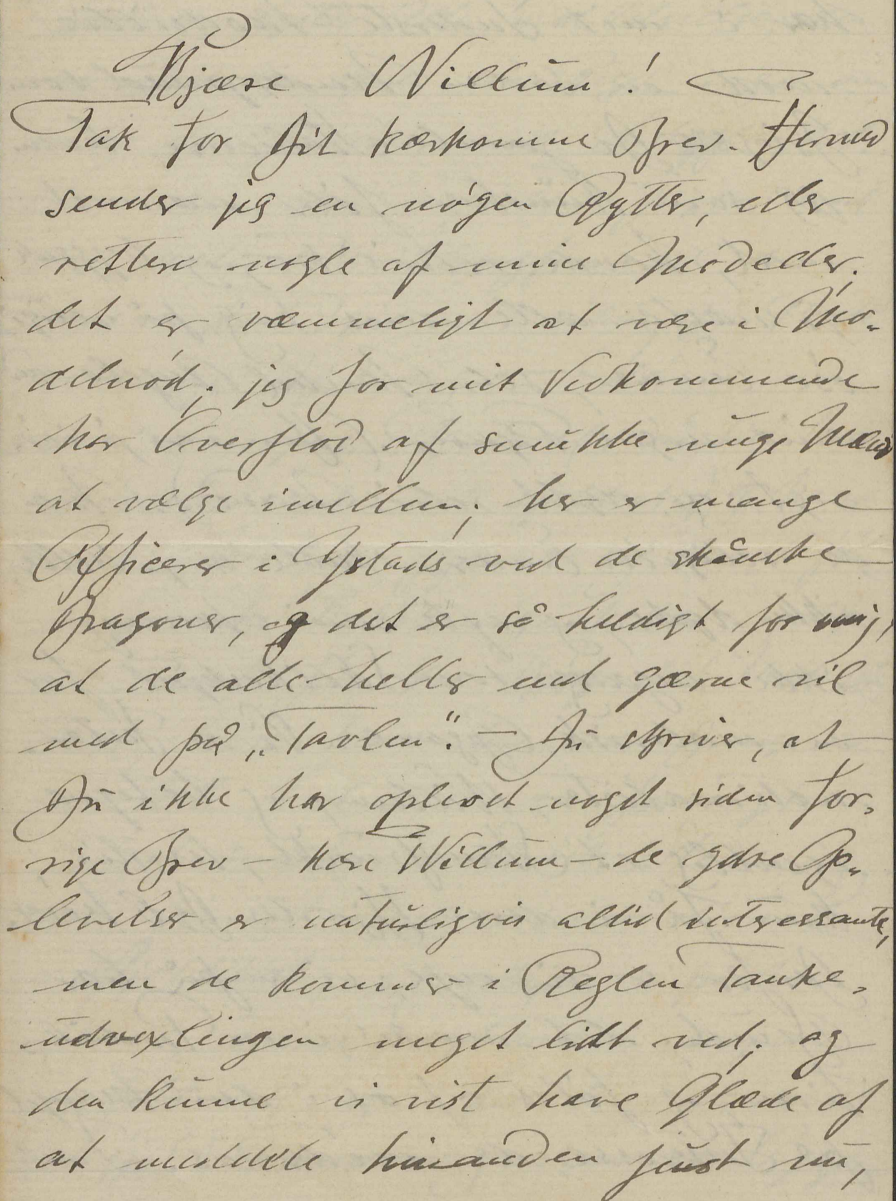 Kjære Willum!
Tak for Dit kærkomne Brev. Hermed
sender jeg en nøgen Rytter, eller
rettere nogle af mine Modeller;
det er væmmeligt at være i Mo-
delnød; jeg for mit Vedkommende
har Overflod af smukke unge Mænd
at vælge imellem; her er mange
Officerer i Ystads ved de skånske
Dragoner, og det er så heldigt for mig,
at de alle heller end gærne vil
med på „Tavlen“. – Du skriver, at
Du ikke har oplevet noget siden for-
rige Brev – kære Willum – de ydre Op-
levelser er naturligvis altid interessante,
men de kommer i Reglen Tanke-
udvexlingen meget lidt ved; og
den kunne vi vist have Glæde af
at meddele hinanden just nu,